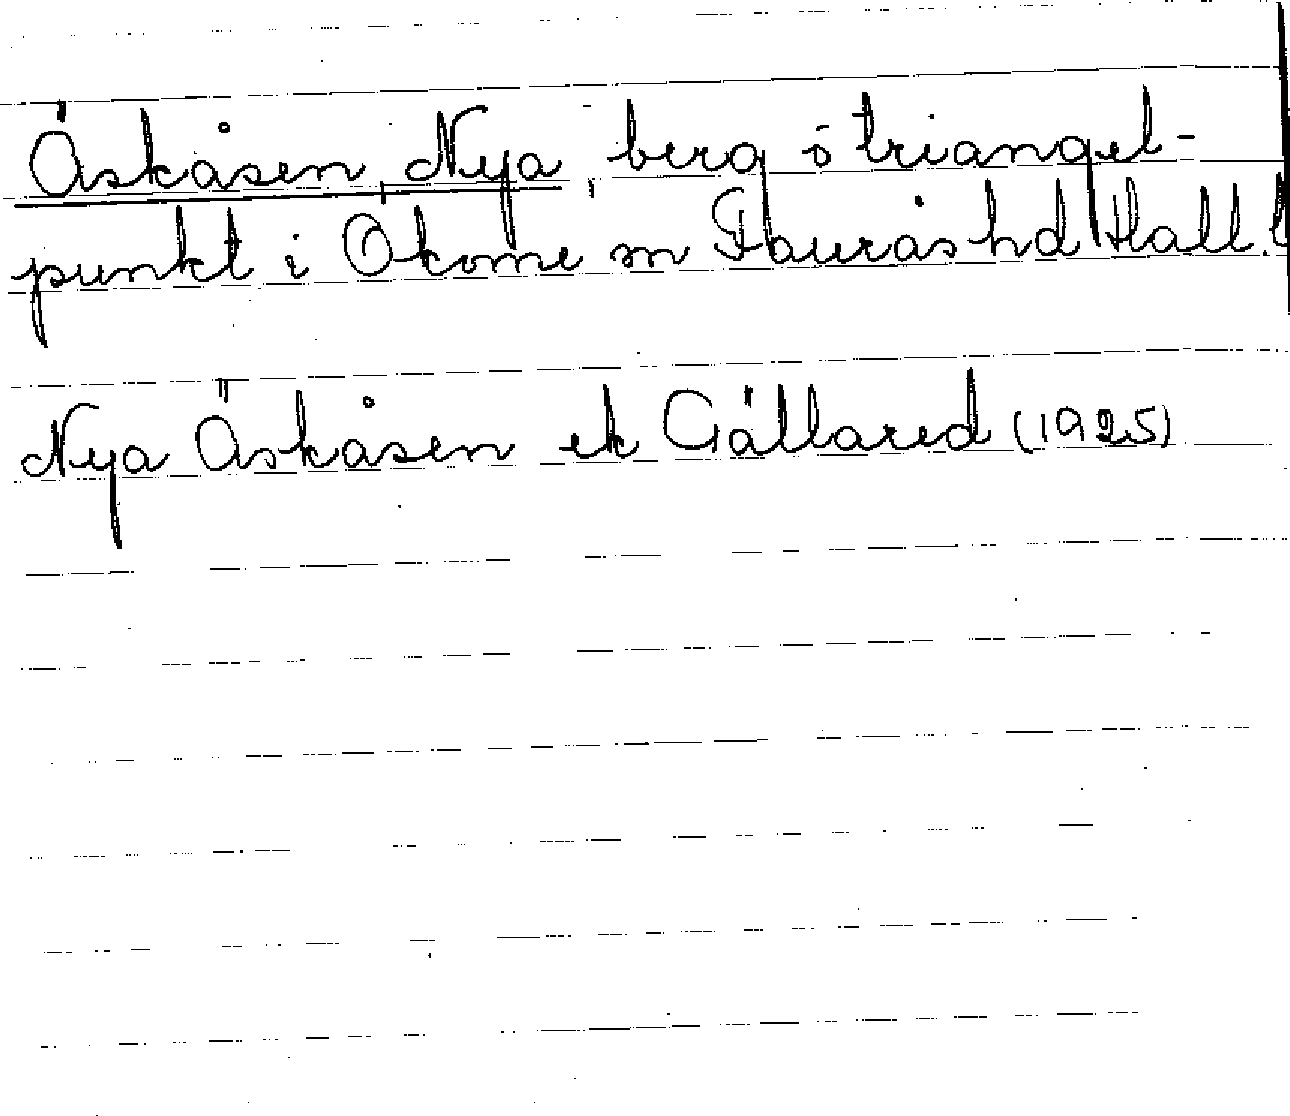 Äskåsen, Nya, berg o triangel-
punkt i Okome sn Faurås hd Hall. l
Nya Äskåsen ek Gällared (1925)